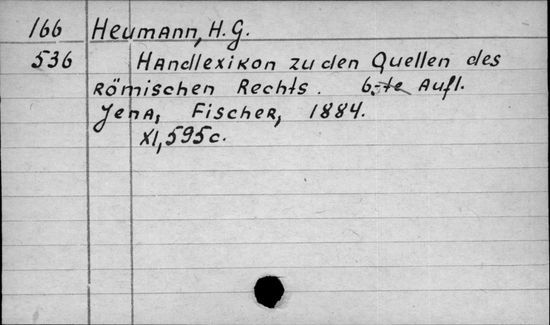 166 Heumann, H.G.
536 Handlexikon zu den Quellen des
Römischen Rechts. 6-te Aufl.
Jena, Fischer, 1884.
XI, 595c.